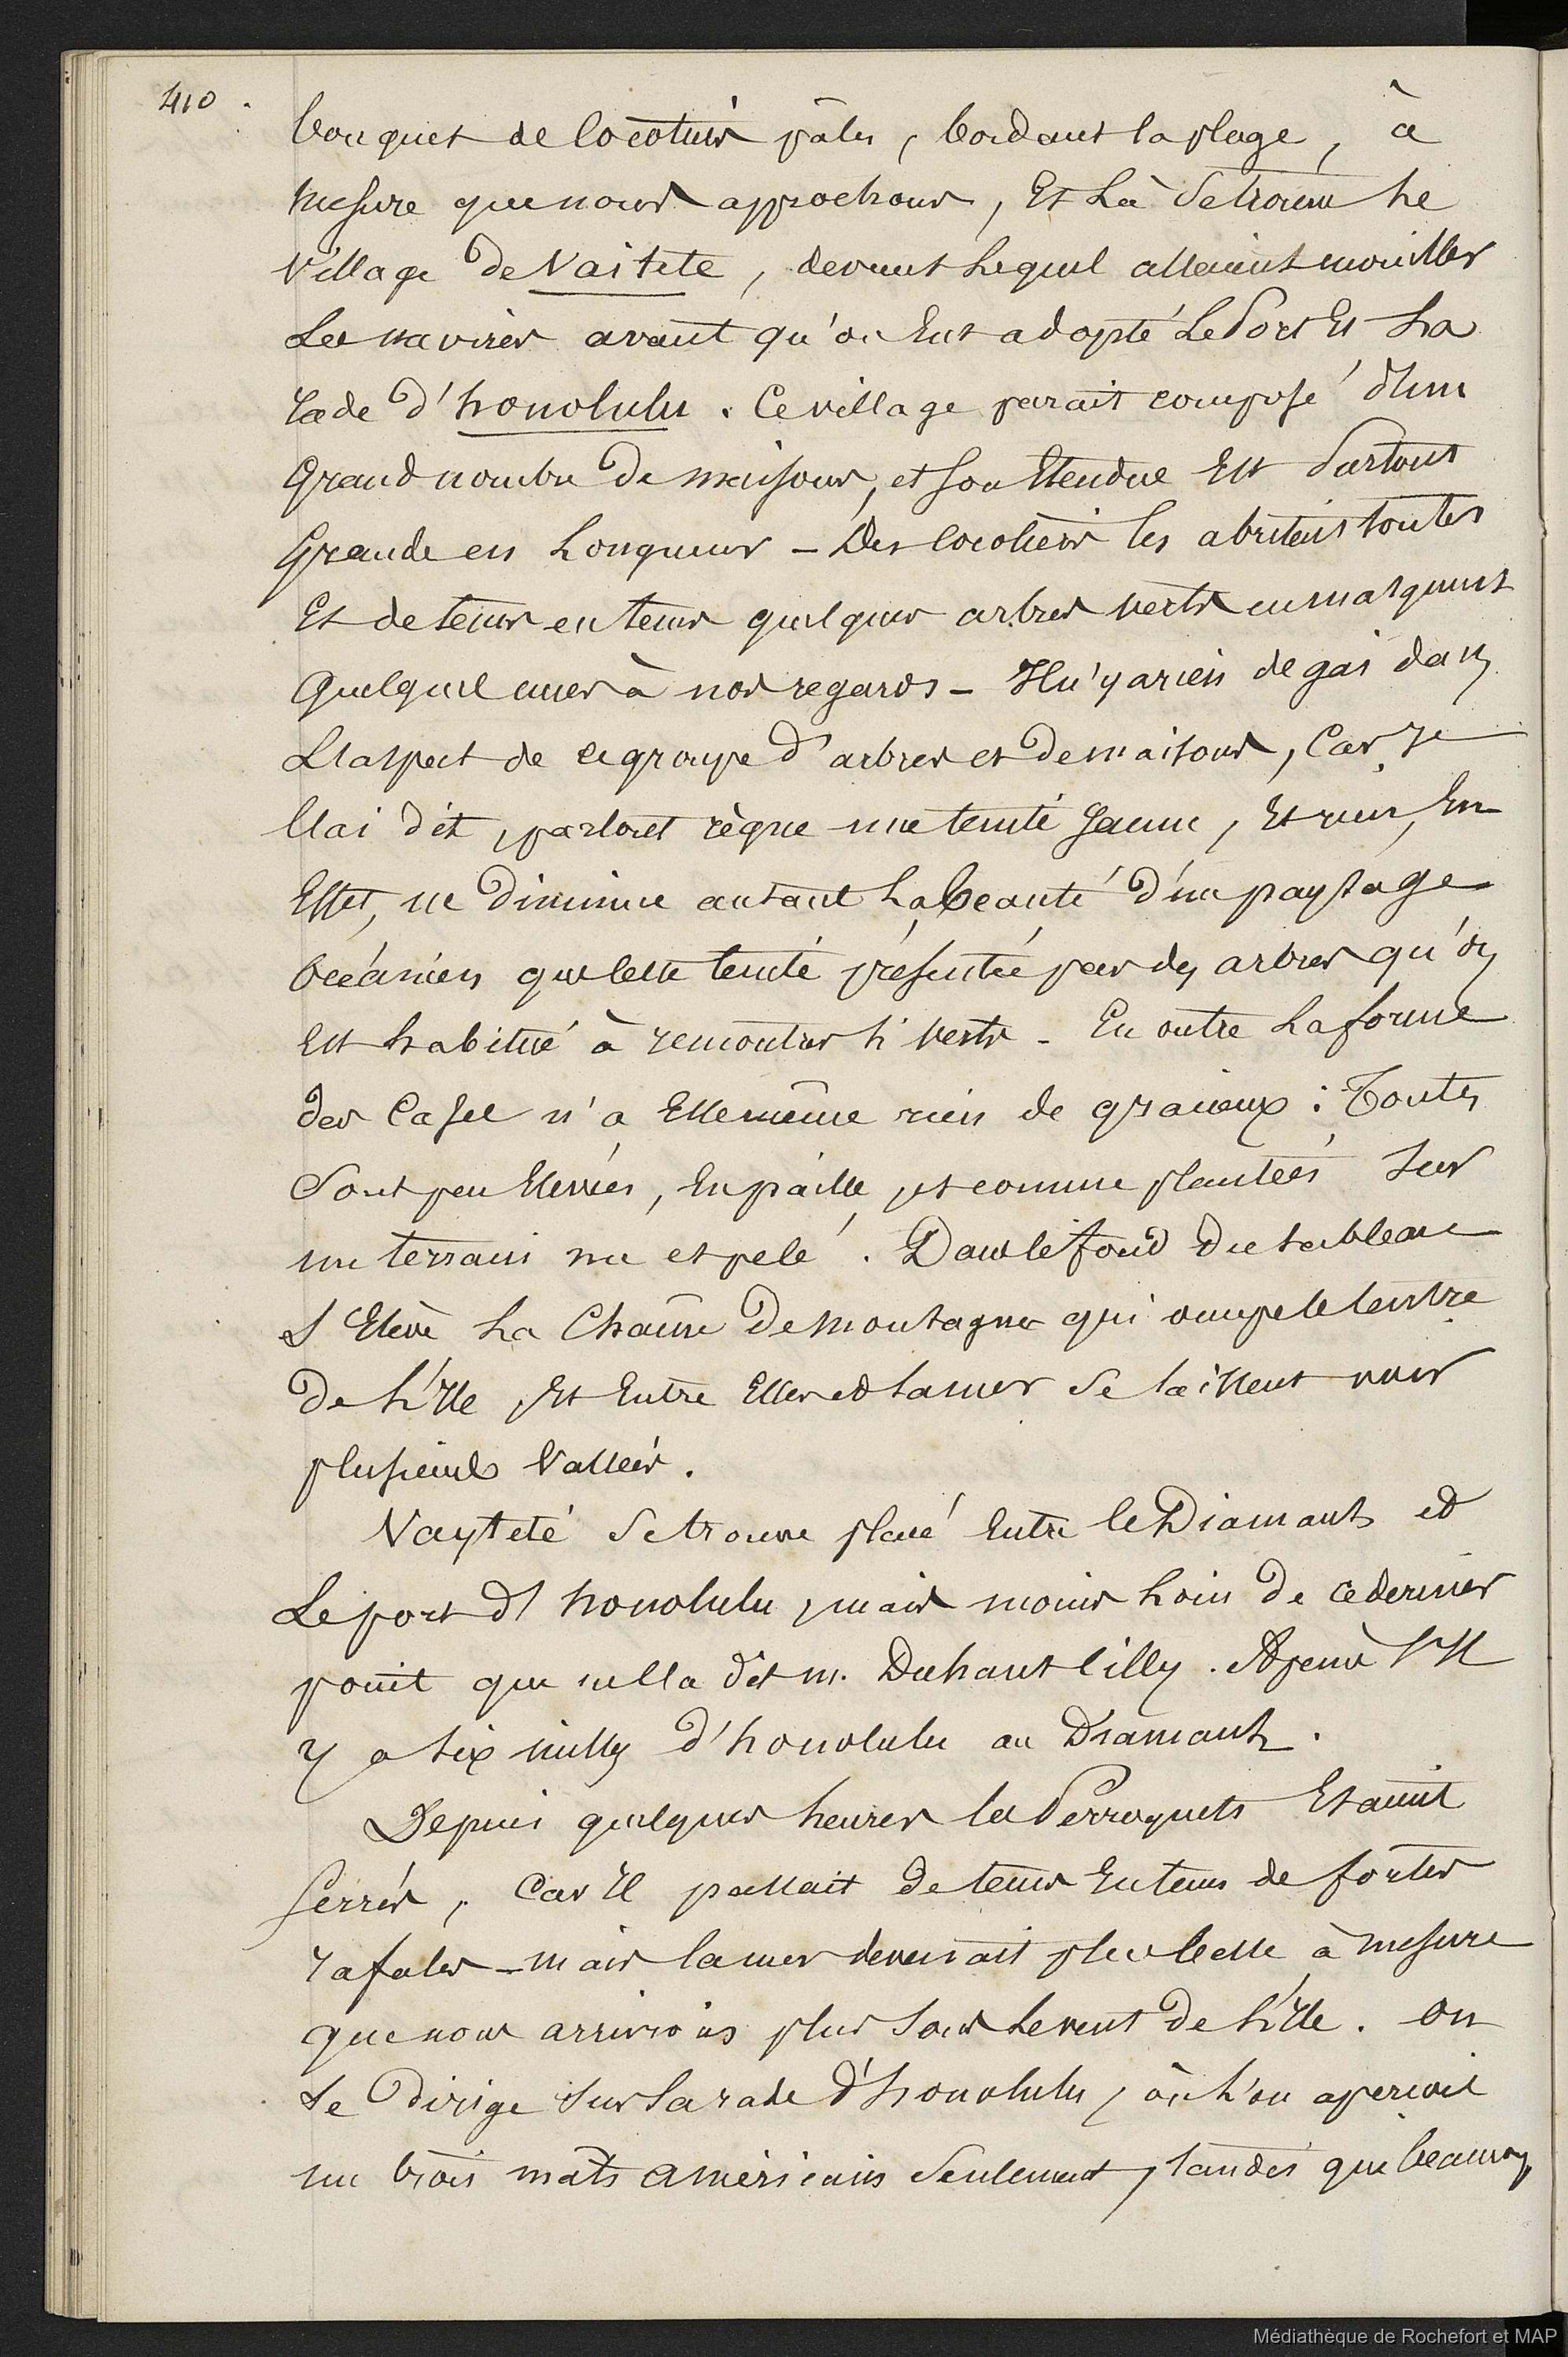 410.
bouquet de Cocotiers pâles, bordant la plage, à
mesure que nous approchons, Et Là se trouve Le
Village de Vaitete, devant Lequel allaient mouiller
Les navires avant qu'on Eut adopté Le Port Et La
rade d'honolulu. Ce village paraît composé d'un
Grand nombre de maisons, et son Etendue Est Surtout
Grande en Longueur - Des Cocotiers les abritent toutes
Et de tems en tems quelques arbres verts en masquent
Quelques unes à nos regards - Il n'y a rien de gai dans
L'aspect de ce groupe d'arbres et de maisons, Car, je
l'ai dit, partout règne une teinte Jaune, Et rien, En
Effet, ne Diminue autant La beauté d'un paysage
Océanien que cette teinte présentée par des arbres qu'on
Est habitué à rencontrer si verts - En outre La forme
des Cases n'a Elle même rien de gracieux : Toutes
Sont peu Elevées, En paille, et comme plantées Sur
un terrain nu et pelé. Dans le fond du tableau
S'Elève La Chaîne De montagnes qui occupe le Centre
De L'Ile, Et Entre Elles et la mer Se laissent voir
plusieurs Vallées.
Vayteté Se trouve placé Entre le Diamant et
Le port d'honolulu, mais moins Loin De ce dernier
point que ne l'a dit m. Duhautcilly. A peine S'Il
y a six milles d'honolulu au Diamant.
Depuis quelques heures les Perroquets Etaient
Serrés, Car Il passait De tems En tems de fortes
rafales - mais la mer devenait plus belle à mesure
que nous arrivions plus Sous Le vent De L'Ile. On
Se Dirige Sur La rade d'honolulu, où L'on aperçoit
un trois mâts américain Seulement, tandis que beaucoup
Médiathèque de Rochefort et MAP